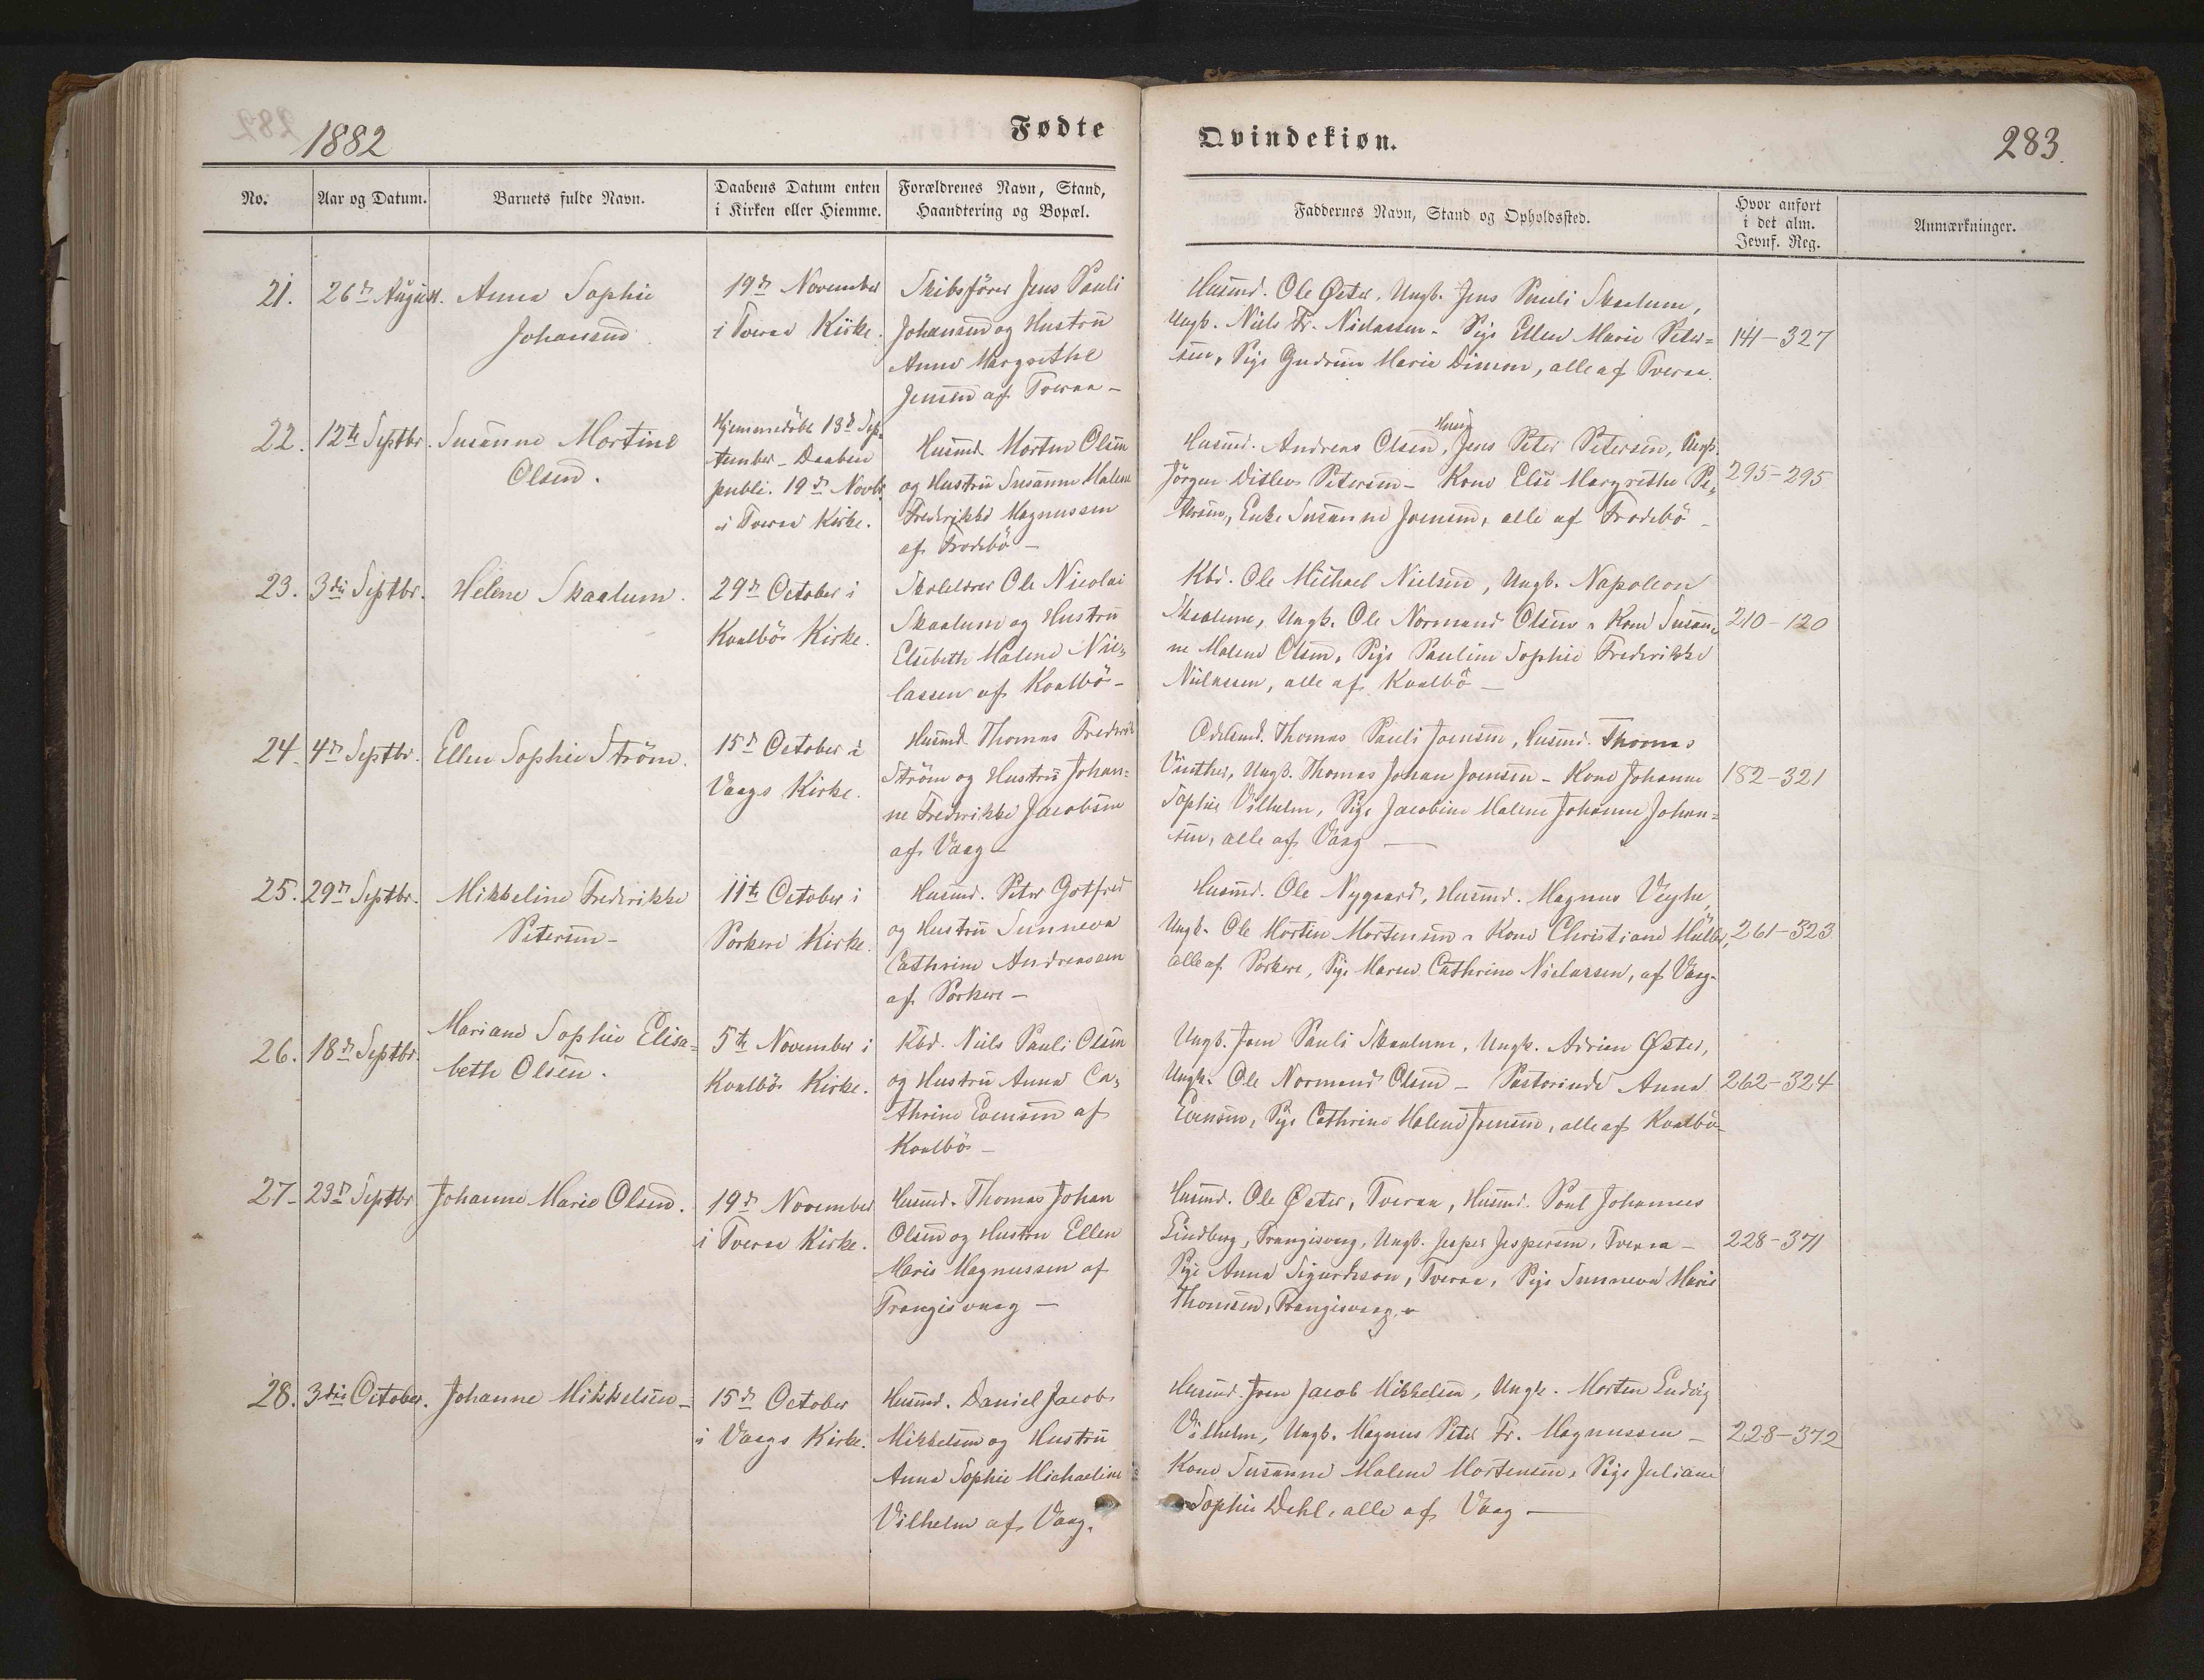 1882
Fødte
No.
Aar og Datum.
Barnets fulde Navn.
Daabens Datum enten
i Kirken eller Hiemme.
Forældrenes Navn, Stand,
Haandtering og Bopæl.
21.
26d August.
Anna Sophie
Johansend
19d November
i Tveraa Kirke.
Skibsfører Jens Pauli
Johansend og Hustru
Anna Margrethe
Jensen af Tveraa –
22.
12te Septbr.
Susanne Mortine
Olsen.
Hjemmedöbt 13d Sep=
tember – Daaben
publi. 19d Novbr
i Tveraa Kirke.
Husmd. Morten Olsen
og Hustru Susanne Malene
Frederikke Magnussen
af Frodebö –
23.
3die Septbr.
Helene Skaalum.
29d October i
Kvalbö Kirke.
Skolelærer Ole Nicolai
Skaalum og Hustru
Elsebeth Malene Nie=
lassen af Kvalbö –
24
4d Septbr.
Ellen Sophie Ström.
15d October i
Vaags Kirke.
Husmd. Thomas Frederik
Ström og Hustru Johan=
ne Frederikke Jacobsen
af Vaag –
25.
29d Septbr.
Mikkeline Frederikke
Petersen –
11te October i
Porkeri Kirke.
Husmd. Peter Gotfred
og Hustru Sunneva
Cathrine Andreasen
af Porkere –
26.
18d Septbr.
Mariane Sophie Elisa=
beth Olsen.
5te November i
Kvalbö Kirke.
Kbd. Niels Pauli Olsen
og Hustru Anna Ca=
thrine Evensen af
Kvalbö –
27 –
23d Septbr
Johanne Marie Olsen.
19d November
i Tveraa Kirke.
Husmd. Thomas Johan
Olsen og Hustru Ellen
Marie Magnussen af
Trangisvaag –
28.
3die October.
Johanne Mikkelsen –
15d October
i Vaags Kirke.
Husmd. Daniel Jacob
Mikkelsen og Hustru
Anna Sophie Michaeline
Vilhelm af Vaag.
Qvindekiøn.
283.
Faddernes Navn, Stand og Opholdssted.
Hvor anført
i det alm.
Jevnf. Reg.
Anmærkninger.
Husmd. Ole Øster, Ungk. Jens Pauli Skaalum,
Ungk. Niels Fr. Nielassen – Pige Ellen Marie Peter=
sen, Pige Gudrun Marie Dimon, alle af Tveraa.
141–327
Husmd. Andreas Olsen, Husmd Jens Peter Petersen, Ungk.
Jörgen Ditlev Petersen – Kone Else Margrethe Pe=
tersen, Enke Susanne Joensen, alle af Frodebö –
295–295
Kbd. Ole Michael Nielsen, Ungk. Napoleon
Skaalum, Ungk. Ole Normand Olsen – Kone Susan=
ne Malene Olsen, Pige Pauline Sophie Frederikke
Nielassen, alle af Kvalbö –
210–120
Odelsmd. Thomas Pauli Joensen, Husmd. Thomas
Vinther, Ungk. Thomas Johan Joensen – Kone Johanne
Sophie Vilhelm, Pige Jacobine Malene Johanne Johan=
sen, alle af Vaag –
182–321
Husmd. Ole Nygaard, Husmd. Magnus Veyhe,
Ungk. Ole Morten Mortensen – Kone Christiane Müller,
alle af Porkere, Pige Maren Cathrine Nielassen, af Vaag –
261–323
Ungk. Joen Pauli Skaalum, Ungk. Adrian Øster,
Ungk. Ole Normand Olsen – Pastorinde Anna
Evensen, Pige Cathrine Malene Joensen, alle af Kvalbö –
262–324
Husmd. Ole Øster, Tveraa, Husmd. Poul Johannes
Lindberg, Trangisvaag, Ungk. Jesper Jespersen, Tveraa –
Pige Anna Sigurdsson, Tveraa, Pige Sunneva Marie
Thomsen, Trangisvaag –
228–371
Husmd. Joen Jacob Mikkelsen, Ungk. Morten Ludvig
Vilhelm, Ungk. Magnus Peter Fr. Magnussen –
Kone Susanne Malene Mortensen, Pige Juliane
Sophie Dahl, alle af Vaag –
228–372